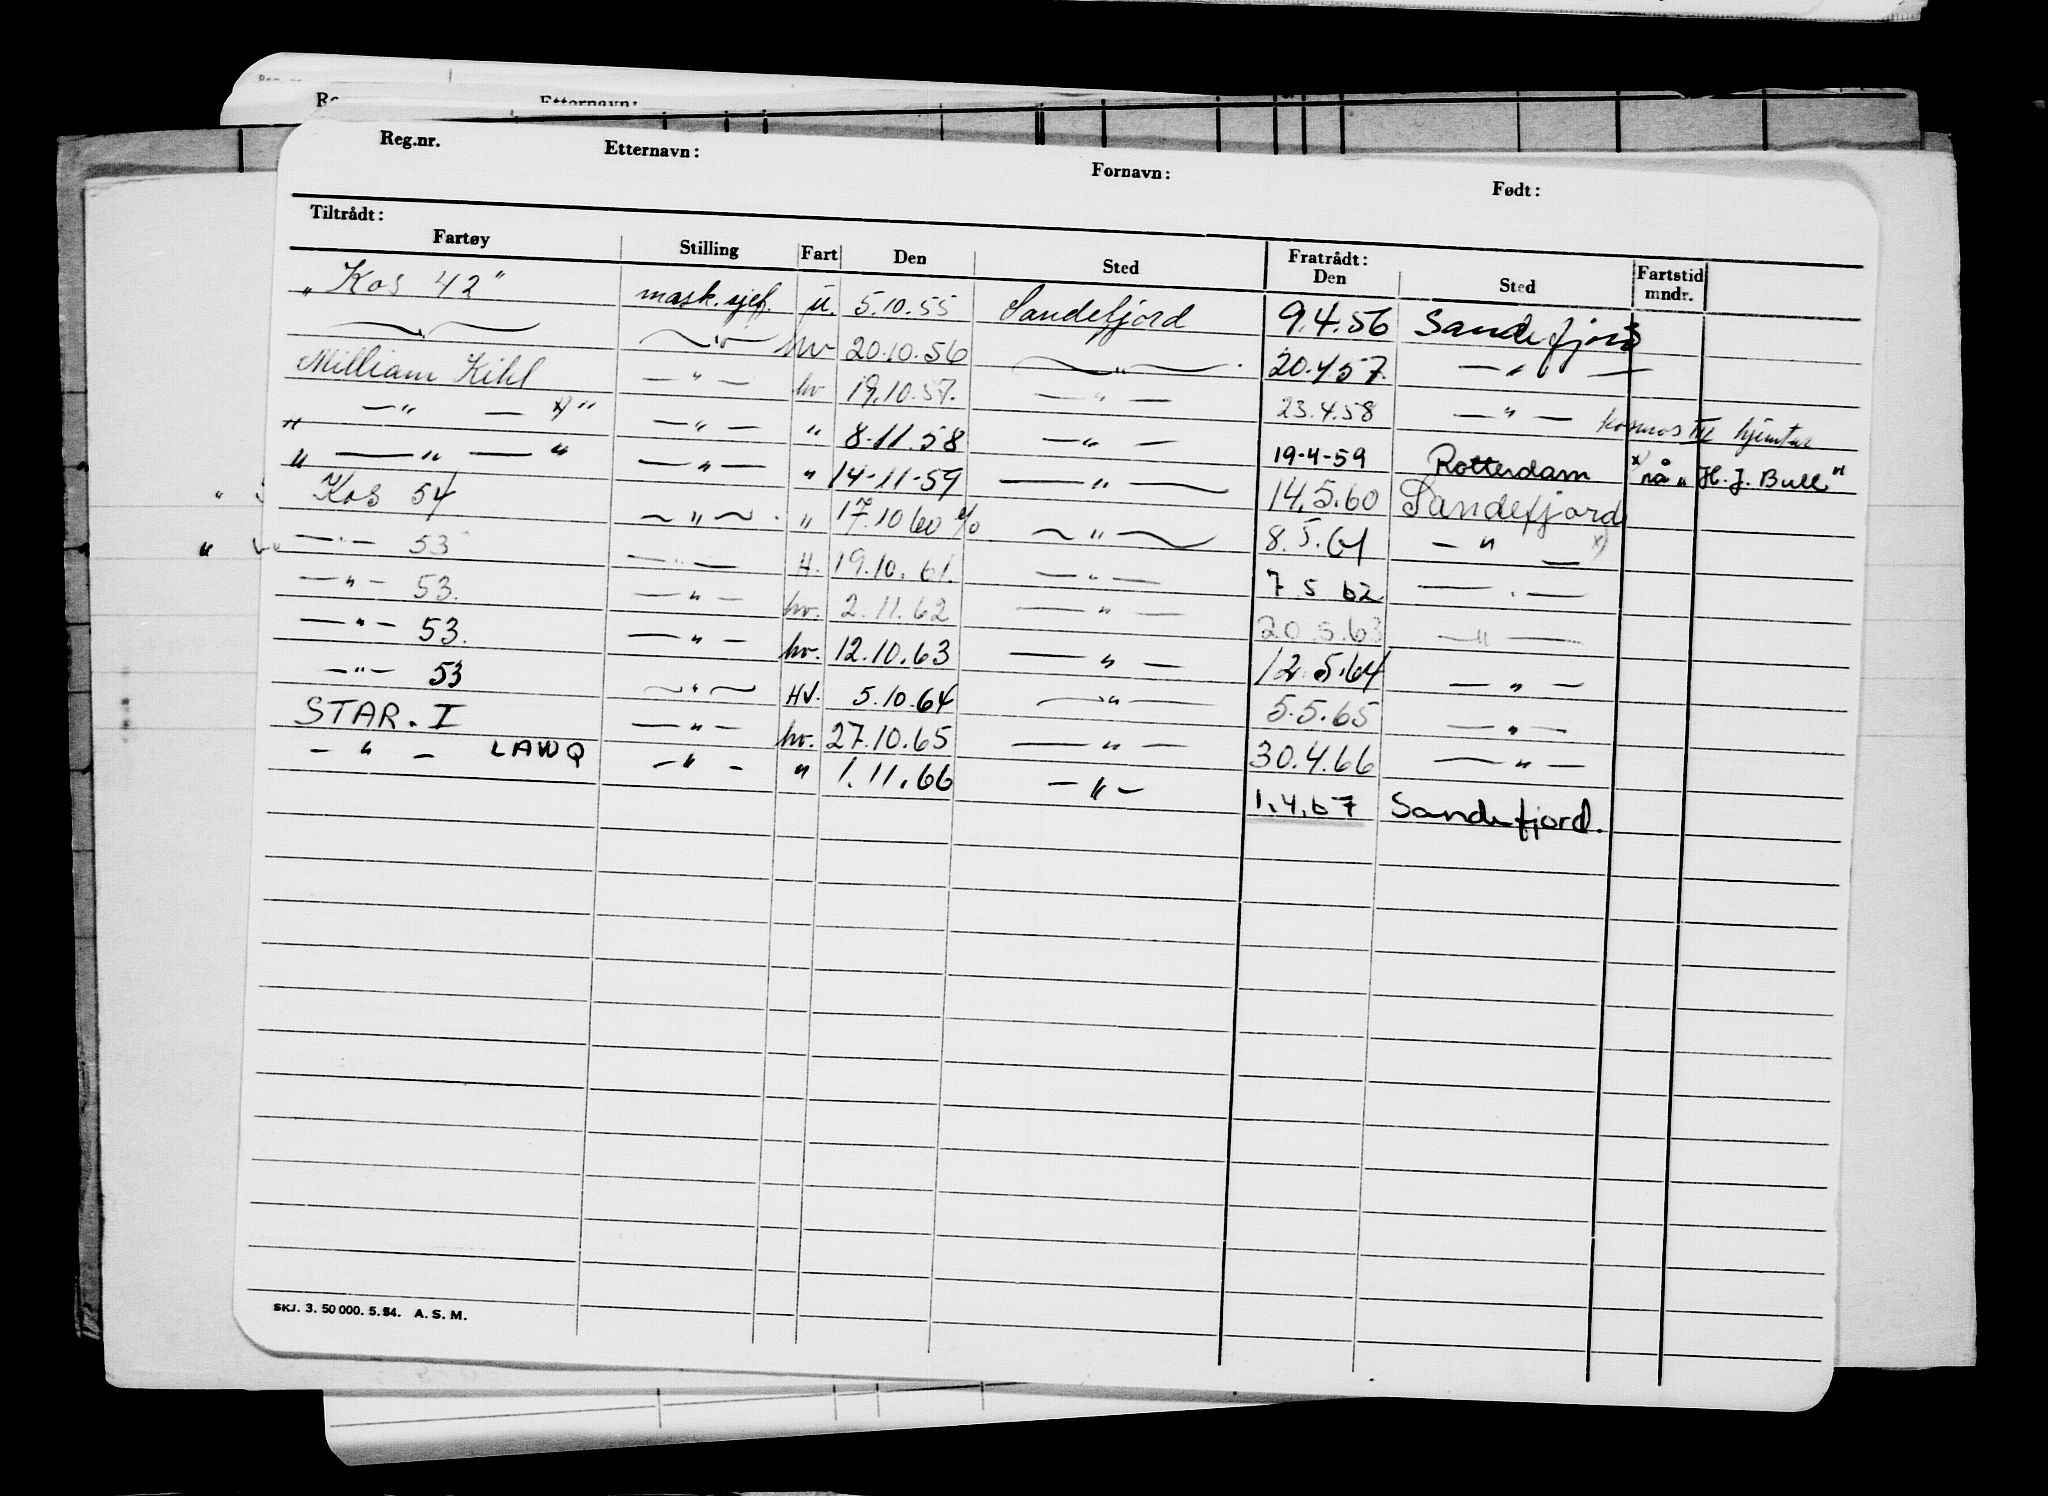 Reg.nr. Etternavn: Fornavn: Født:
Tiltrådt: Fratrådt:
Fartøy Stilling Fart Den Sted Den Sted Fartstid mndr.
"Kos 42" mask.sjef. u. 5.10.55 Sandefjord 9.4.56 Sandefjord
— " — — " — hv 20.10.56 — " — 20.4.57. — " —
William Kihl — " — hv 19.10.57. — " — 23.4.58 — " — Kosmos III hjemtur
" — " — x) " — " — " 8-11.58 — " — 19-4-59 Rotterdam x) nå "H. J. Bull"
" — " — " — " — " 14-11-59 — " — 14.5.60 Sandefjord
Kos 54 — " — " 17.10 60 — " — 8.5.61 — " — x)
— " — 53 — " — H. 19.10.61. — " — 7 5 62 — " —
— " — 53. — " — hv. 2.11.62 — " — 20.5.63 — " —
— " — 53. — " — hv. 12.10.63 — " — 12.5.64 — " —
— " — 53 — " — HV. 5.10.64 — " — 5.5.65 — " —
STAR. I — " — hv. 27.10.65 — " — 30.4.66 — " —
— " — LAWQ — " — " 1.11.66 — " — 1.4.67 Sandefjord.
SKJ. 3. 50 000. 5. 54. A. S. M.